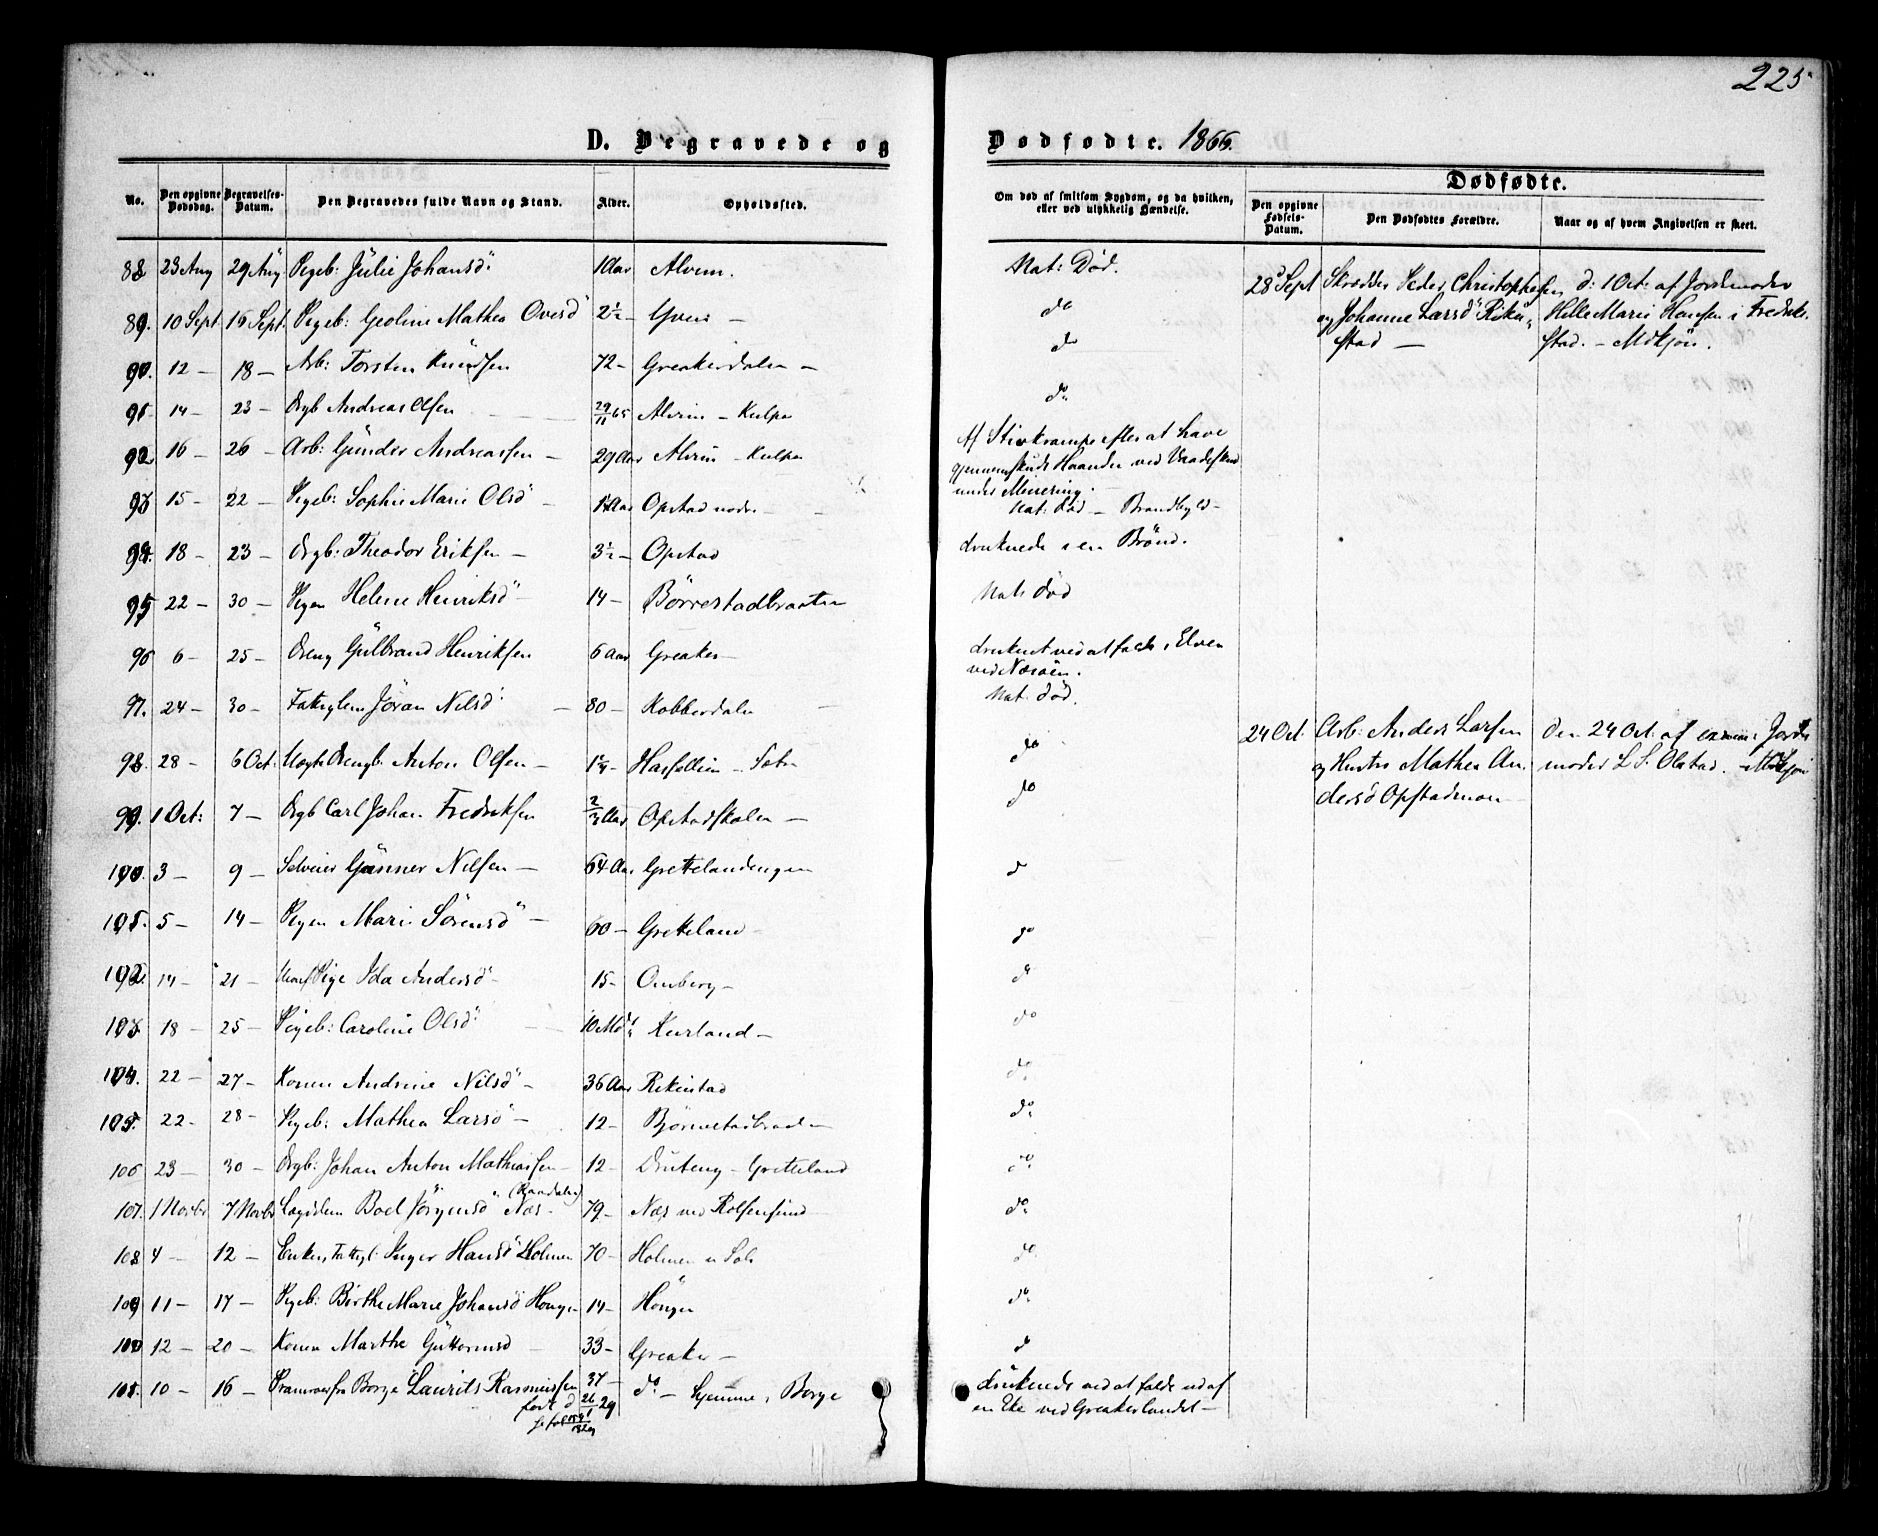 225
D. Begravede og Dødfødte. 1866.
No. Den opgivne Dødsdag. Begravelses-Datum. Den Begravedes fulde Navn og Stand. Alder. Opholdssted. Om død af smitsom Sygdom, og da hvilken, eller ved ulykkelig Hændelse. Dødfødte.
Den opgivne Fødsels-Datum. Den Dødfødtes Forældre. Naar og af hvem Angivelsen er skeet.
88 23 Aug 29 Aug. Pigeb: Julie Johansd" 1 Aar Alvim. Nat: Död.
28 Sept Skrædder Peder Christophersen d: 1 Oct: af Jordemoder
og Johanne Larsd" Stad — Hille Marie Hansen i Fredrik-
stad. —
89. 10 Sept 16 Sept. Pigeb: Geoline Mathea Ovesd" 2½ — Yven — do
90. 12 — 18 — Arb: Torsten Knudsen 72 — Greakerdalen — do
91. 14 — 23 — Drgb Andreas Olsen 29/11 65 Alvim — Kulpe do
92 16 — 26 — Arb: Gunder Andreassen — 29 Aar Alvim — Kulpe Af Stivkrampe efter at have
gjennemskudt Haanden ved Vaadeskud
under Minering.
93 15 — 22 — Pigeb: Sophie Marie Olsd" — Aar Opstad nodre — Nat: död — Brandbyld —
94. 18 — 23 — Drgb: Theodor Eriksen — 3½ — Opstad druknede i en Brönd.
95 22 — 30 — Pigen Helene Henriksd" 14 — Börrestadbraaten Nat: död
96 6 — 25 — Dreng Gulbrand Henriksen 6 Aar Greaker — druknet ved at falde i Elven
ved Næsöen.
97. 24 — 30 — Fattiglem Jöran Nilsd" — 80 — Kobberdalen — Nat: död.
98. 28 — 6 Oct: Uægte Drengb. Anton Olsen — 1¼ — Hasellien — do
24 Oct. Arb: Anders Larsen den 24 Oct: af examin: Jorde
og Hustru Mathea An- moder L. S. Olstad.
dersd Opstadmoen
99. 1 Oct: 7 — Drgb Carl Johan Fredriksen Aar Opstadskalen — do
100. 3 — 9 — Selveier Gunner Nilsen — 64 Aar Grettelandengen d
101. 5 — 14 — Pigen Mari Sörensd" — 60 — Gretteland — do
102. 14 — 21 — Pige Ida Andersd" 15 — Omberg — d
103 18 — 25 — Pigeb: Caroline Olsd" 10 Md Kurland — do
104. 22 — 27 — Konen Andrine Nilsd" — 36 Aar Rekustad do
105. 22 — 28 — Pigeb: Mathea Larsd" — 12 — Björnestadbraaten do
106 23 — 30 — Drgb: Johan Anton Mathiassen — 12 — Gretteland do
107. 1 Novbr 7 Novbr Lægdslem Boel Jörgensd" Næs — (Raadalen) 79 — Næs ved Rolfsösund do
108 4 — 12 — Enken Fattigl. Inger Hansd" Holmen 70 — Holmen u Sole do
109 11 — 17 — Pigeb: Birthe Marie Johansd" Hougen 14 — Hougen do
110 12 — 20 — Konen Marthe Guttormsd — 33 — Greaker — d
111. 10 — 16 — Pramroer fra Borge Laurits Rasmussen 37 — do — hjemme i Borge druknede ved at falde ud af
en Eke ved Greakerlandet —
född d 26/1 29